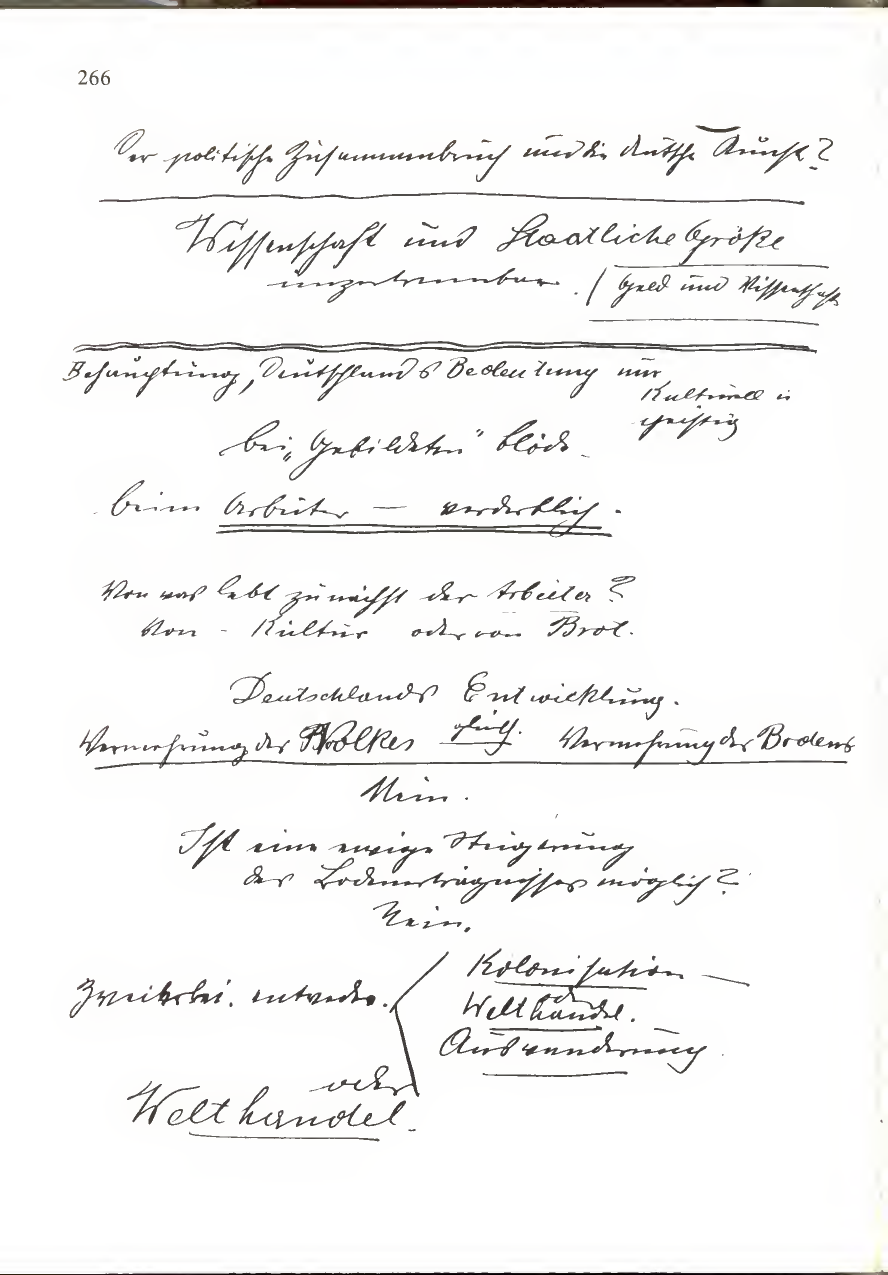 266
Der politische Zusammenbruch und die deutsche Kunst?
Wissenschaft und Staatliche Größe
unzertrennbar. / Geld und Wissenschaft
Behauptung, Deutschlands Bedeutung nur
Kulturell u
geistig
bei „Gebildeten" blöde
beim Arbeiter — verderblich.
Von was lebt zunächst der Arbeiter?
Von - Kultur oder von Brot.
Deutschlands Entwicklung.
Vermehrung des Volkes gleich. Vermehrung des Bodens
Nein.
Ist eine ewige Steigerung
des Bodenerträgnisses möglich?
Nein.
Zweierlei. entweder. Kolonisation —
oder
Welthandel.
Auswanderung.
oder
Welthandel.